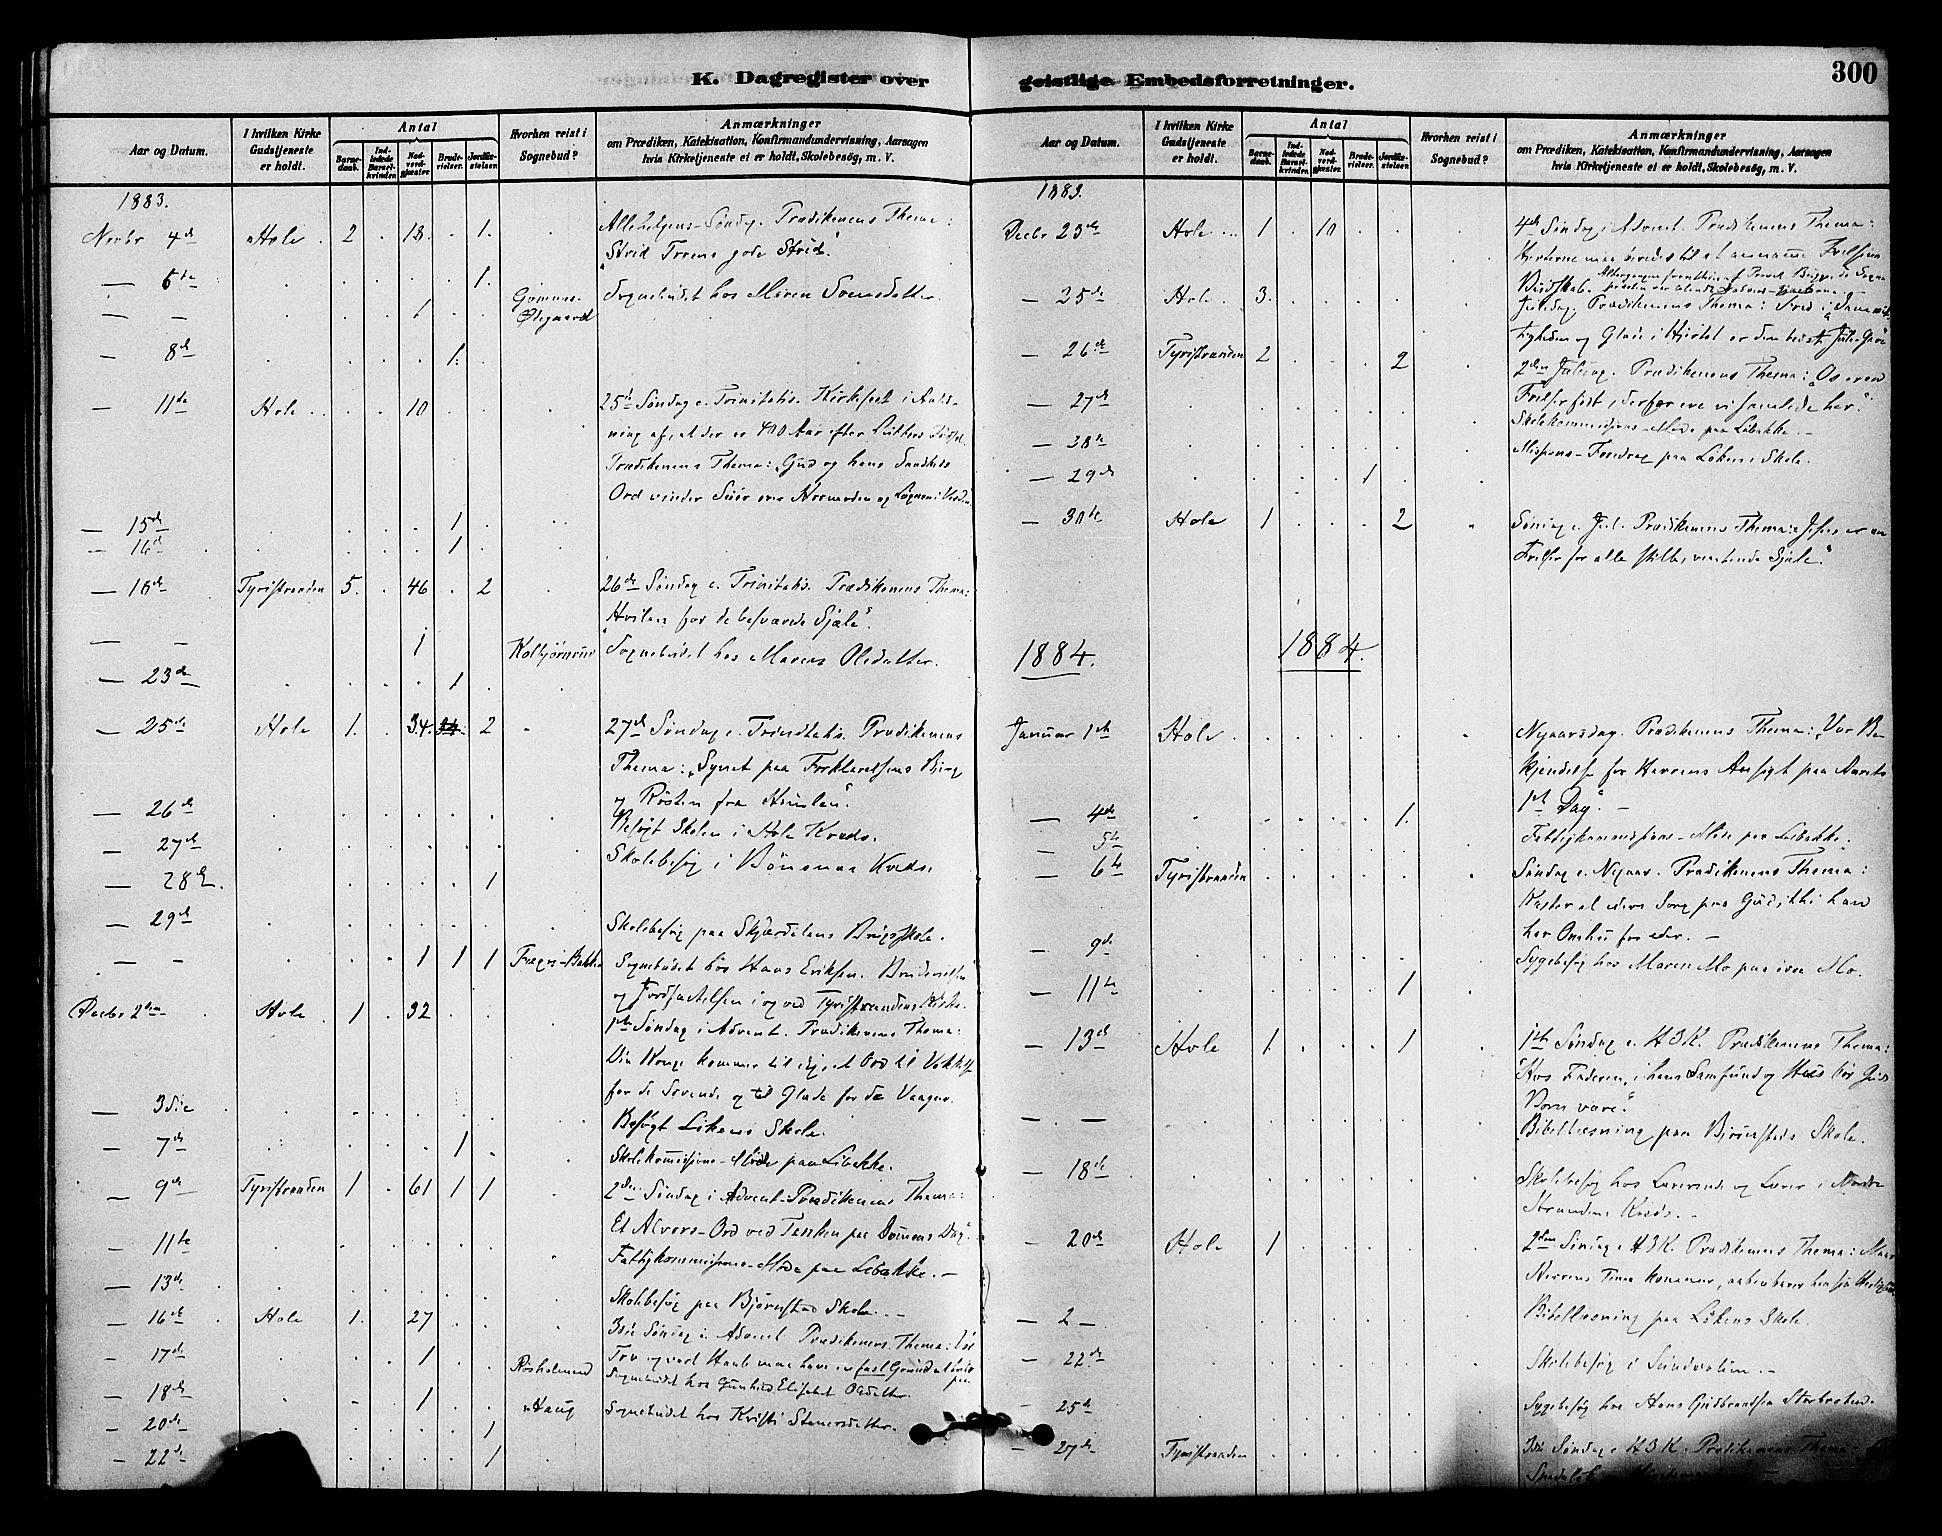 K. Dagregister over geistlige Embedsforretninger.
300
Aar og Datum.
I hvilken Kirke Gudstjeneste er holdt.
Antal
Barnedaab.
Indledede Barselkvinder.
Nadverdgjæster.
Brudevielser.
Jordfæstelser.
Hvorhen reist i Sognebud?
Anmærkninger
om Prædiken, Katekisation, Konfirmandundervisning, Aarsagen
hvis Kirketjeneste ei er holdt, Skolebesøg, m. V.
1883.
Novbr 4de Hole 2 18. 1. Allehelgens-Søndag. Prædikenens Thema:
"Strid Troens gode Strid".
— 6te 1.
— — 1 Ødegaard Sognebudet hos Maren Svensdatter.
— 8de 1.
— 11te Hole 10 25de Søndag e. Trinitatis. Kirkefest i Anled-
ning af, at der er 400 Aar efter Luthers Fødsel.
Prædikenens Thema: "Gud og hans Sandheds
Ord vinder Seier over og Løgnen i Verden
— 15de 1
— 16de 1
— 18de Tyristranden 5. 46 2 26de Søndag e. Trinitatis. Prædikenens Thema:
"Hvilen for de besværede Sjæle".
— — 1 Kolbjørnrud Sognebudet hos Maren Olsdatter.
— 23de 1
— 25de Hole 1. 34. 2 27de Søndag e. Trinitatis. Prædikenens
Thema: "Synet paa Forklarelsens Bjerg
og Røsten fra Himlen".
— 26de Besøgt Skolen i Hole Kreds.
— 27de Skolebesøg i Bönsnæs Kreds.
— 28de. 1
— 29de Skolebesøg paa Skjærdalens Brugsskole.
— — 1 1 1 Sognebudet hos Hans Eriksen. Brudevielsen
og Jordfæstelsen i og ved Tyristrandens Kirke.
Decbr 2den Hole 1 32 1ste Søndag i Advent. Prædikenens Thema:
Din Konge kommer til dig, et Ord til
for de Sovende og til Glæde for de Vaagne.
— 3die Besøgt Løkens Skole.
— 7de 1 Skolekommissions-Møde paa Libakke.
— 9de Tyristranden 1 61 1 1 2den Søndag i Advent. Prædikenens Thema:
Et Alvors-Ord ved Tanken paa Dommens Dag".
— 11te Fattigkommissions-Møde paa Libakke. —
— 13de Skolebesøg paa Bjørnstad Skole. —
— 16de Hole 1. 27 3die Søndag i Advent. Prædikenens Thema:
Tro og vort Haab maa have en fast Grund at hvile paa
— 17de 1 Sognebudet hos Gunhild Elisabet Olsdatter.
— 18de 1 Haug Sognebudet hos Kristi Stenersdatter.
— 20de 1
— 22de 1
1883.
Decbr 23de Hole 1 10 4de Søndag i Advent. Prædikenens Thema:
Hjerterne maa beredes til at annamme Frelseren
— 25de Hole 3. Juledag. Prædikenens Thema: Fred i Samvit-
tigheden og Glæde i Hjertet er den bedste Jule-Gave
— 26de Tyristranden 2 2 2den Juledag. Prædikenens Thema: "Os er en
Frelser født, derfor ere vi samlede her."
— 27de Skolekommissions-Møde paa Libakke. —
— 28de Missions-Foredrag paa Løkens Skole.
— 29de 1
— 30te Hole 1 2 Søndag e. Jul. Prædikenens Thema: Jesus er en
Frelser for alle stille, ventende Sjæle".
1884. 1884.
Januar 1ste Hole Nyaarsdag. Prædikenens Thema: "Vor Be-
kjendelse for Herrens Ansigt paa Aarets
1ste Dag". —
— 4de 1.
— 5te Fattigkommissions-Møde paa Libakke.
— 6te Tyristranden Søndag e. Nyaar. Prædikenens Thema:
Kaster al eders Sorg paa Gud, thi han
har Omhu for eder. —
— 9de Sygebesøg hos Maren Mo paa Mo.
— 11te 1
— 13de Hole 1 1 1ste Søndag e. H3K. Prædikenens Thema:
"Hos Faderen, i hans Samfund og Hus bør Guds
Børn være".
— — Bibellæsning paa Bjørnstads Skole.
— 18de Skolebesøg hos Lærerinde og Lærer i Nordre
Strandens Kreds. —
— 20de Hole 1 2den Søndag e. H3K. Prædikenens Thema: Naar
Herrens Time kommer, aabenbarer han sin Herlighed
— 2 — Bibellæsning paa Løkens Skole.
— 22de Skolebesøg i Sundvolden. —
— 25de Sygebesøg hos Hans Gudbrandsen
— 27de Tyristranden 3die Søndag e. H3K. Prædikenens Thema: